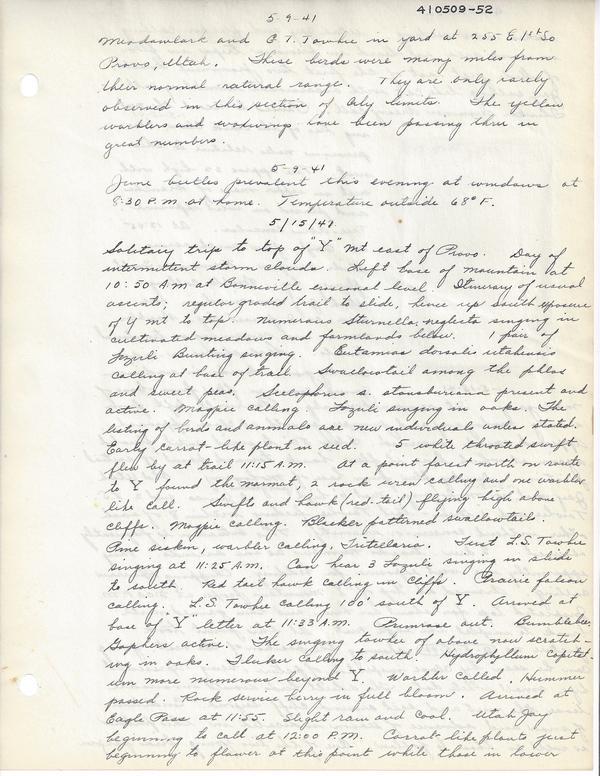 5-9-41
410509-52
Meadowlark and G.T. Towhee in yard at 255 E 1st So
Provo, Utah. These birds were many miles from
their normal natural range. They are only rarely
observed in this section of City limits. The yellow
warblers and waxwings have been passing thru in
great numbers.
5-9-41
June beetles prevalent this evening at windows at
8:30 P.M. at home. Temperature outside 68° F.
5/15/41
Solitary trip to top of "Y" Mt east of Provo. Day of
intermittent storm clouds. Left base of mountain at
10:50 AM at Bonneville erosional level. Itinerary of usual
ascents; regular graded trail to slide, hence up south exposure
of Y mt to top. Numerous Sturnella neglecta singing in
cultivated meadows and farmlands below. 1 pair of
Lazuli Bunting singing. Eutamias dorsalis utahensis
calling at base of trail. Swallowtail among the phlox
and sweet peas. Sceloporus s. stansburiana present and
active. Magpie calling. Lazuli singing in oaks. The
listing of birds and animals are new individuals unless stated.
Early carrot-like plant in seed. 5 white throated swift
flew by at trail 11:15 A.M. At a point forest north on route
to Y found the marmot, 2 rock wren calling and one warbler
like call. Swifts and hawk (red-tail) flying high above
cliffs. Magpie calling. Blacker patterned swallowtails.
Pine siskin, warbler calling, Fritellaria. First L.S. Towhee
singing at 11:25 A.M. Can hear 3 Lazuli singing in slide
to south. Red tail hawk calling in cliffs. Prairie falcon
calling. L.S. Towhee calling 100' south of Y. Arrived at
base of "Y" letter at 11:33 A.M. Primrose out. Bumblebee,
Gophers active. The singing towhee of above now scratch-
ing in oaks. Flicker calling to south. Hydrophyllum capitat-
um more numerous beyond Y. Warbler called. Hummer
passed. Rock service berry in full bloom. Arrived at
Eagle Pass at 11:55. Slight rain and cool. Utah Jay
beginning to call at 12:00 P.M. Carrot-like plants just
beginning to flower at this point while those in lower